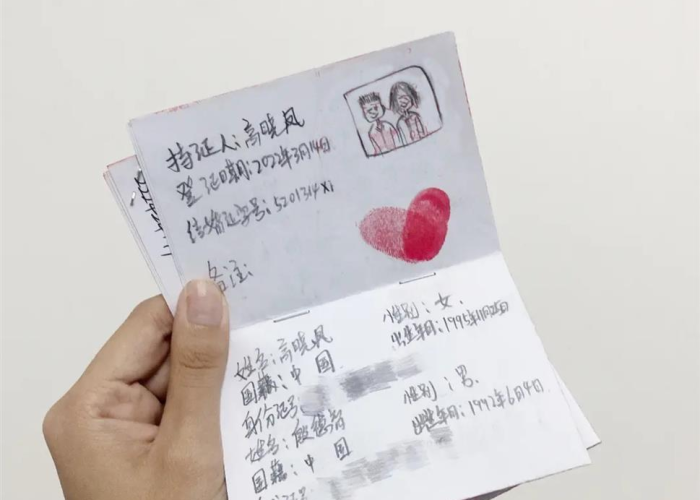 持证人:高晓凤
登记日期:2022年3月14日
结婚证字号:5201314
备注:
姓名:高晓凤 性别:女.
国籍:中国 出生年月:1995年11月25日
身份证号
姓名: 性别:男.
国籍:中国 出生年月:1992年6月4日